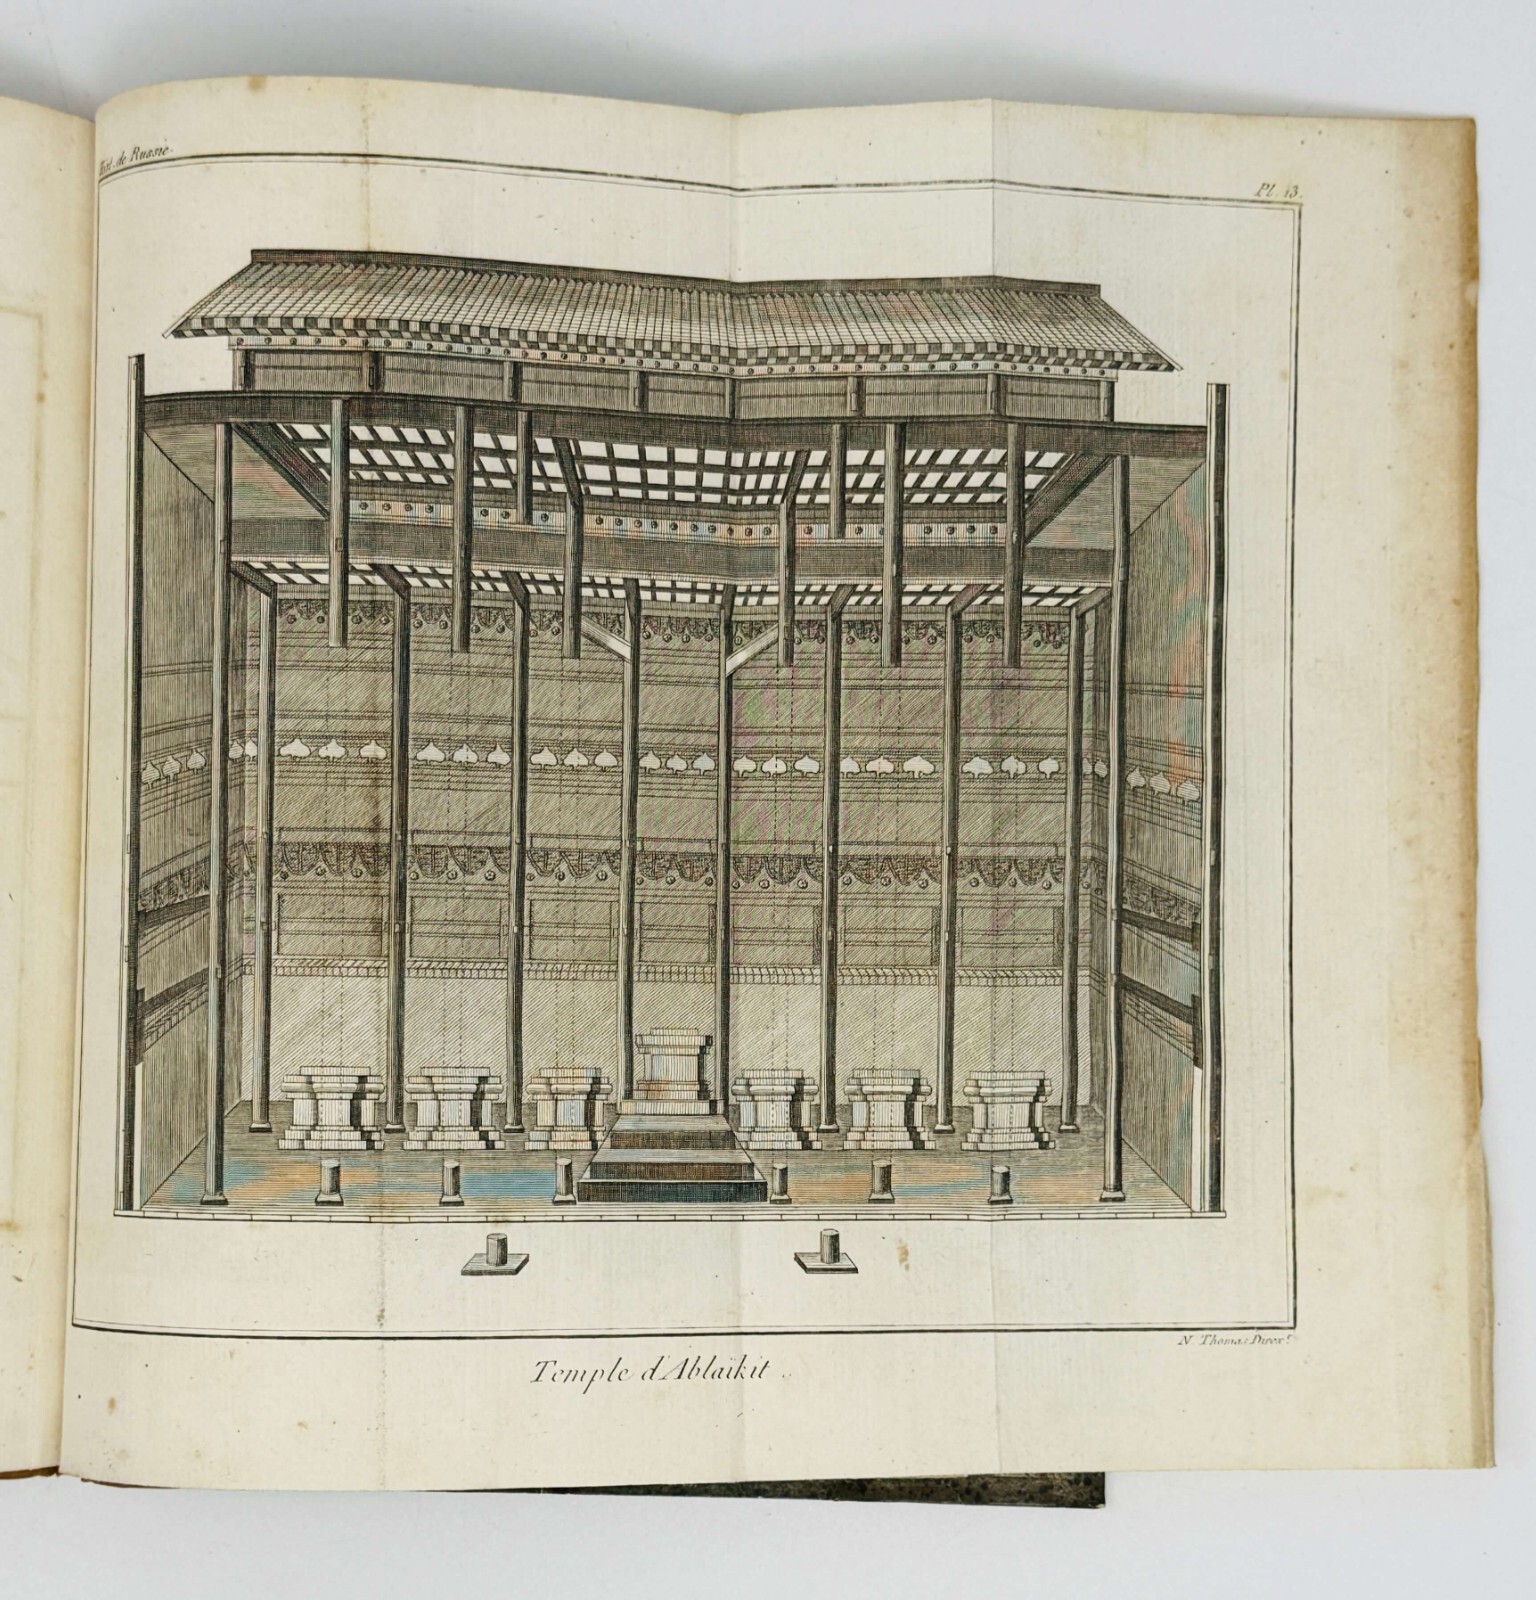 Hist. de Russie.
Pl. 13.
N. Thomas Direx.t
Temple d'Ablaïkit.